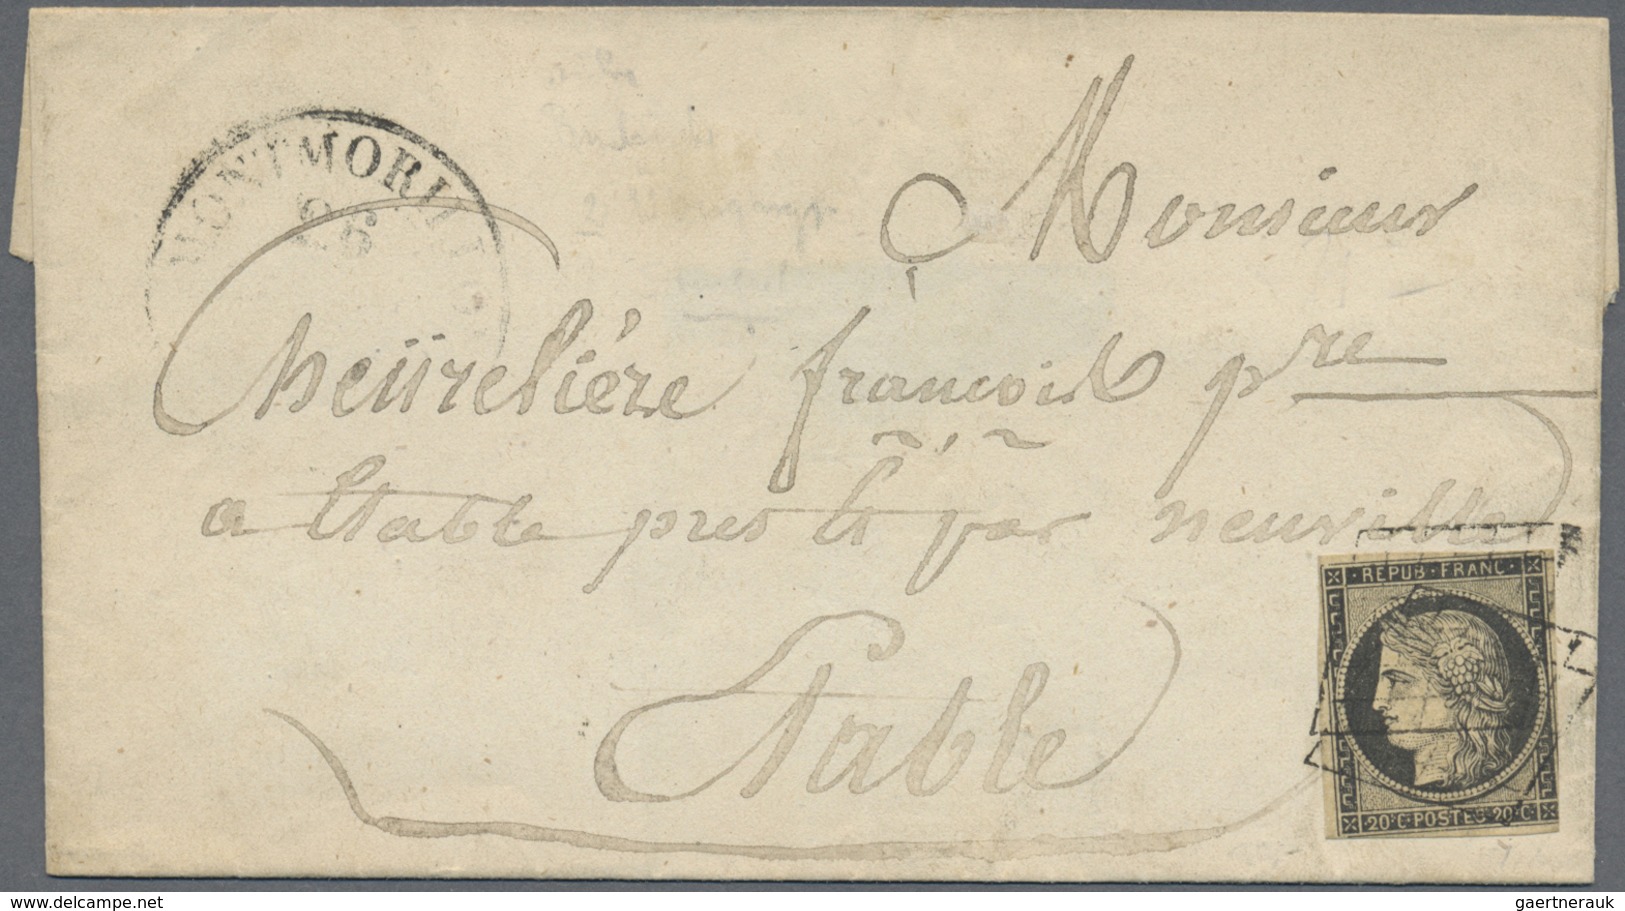 MONTMORILL
26
Monsieur
Cheüreliére françois pre
a Etable pres par neuville
Etable
REPUB·FRANC·
20·C·POSTES·20·C·
www.delcampe.net
gaertnerauk